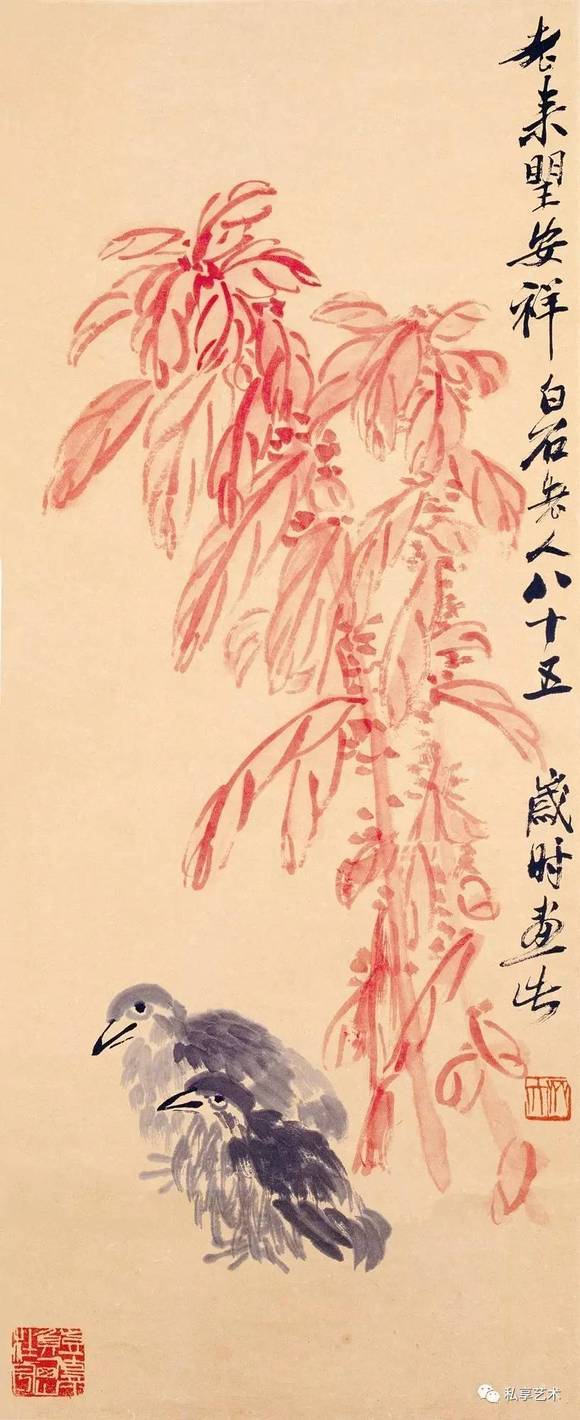 老来朢安祥 白石老人八十五 歲时画此
私享艺术